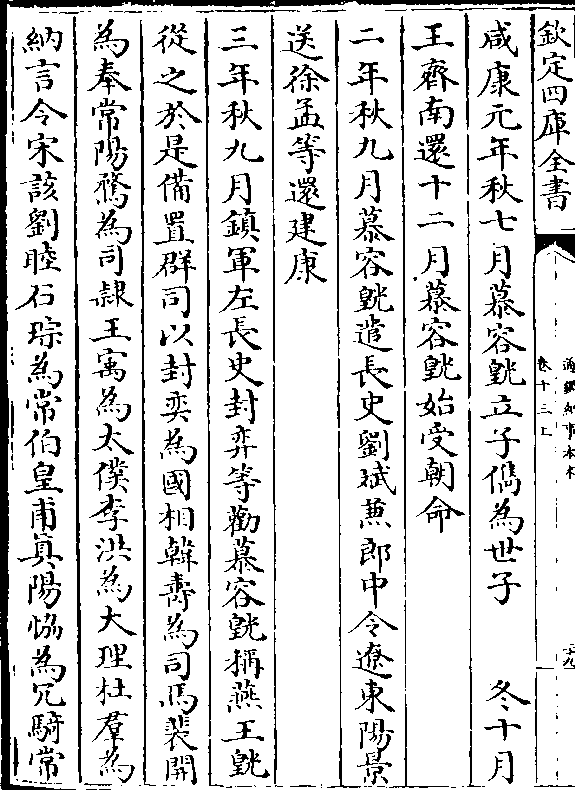 欽定四庫全書
通鑑紀事本末
卷十三上
咸康元年秋七月慕容皝立子儁為世子 冬十月
王齊南還十二月慕容皝始受朝命
二年秋九月慕容皝遣長史劉斌兼郎中令遼東陽景
送徐孟等還建康
三年秋九月鎮軍左長史封弈等勸慕容皝稱燕王皝
從之於是備置群司以封奕為國相韓壽為司馬裴開
為奉常陽騖為司隸王寓為太僕李洪為大理杜羣為
納言令宋該劉睦石琮為常伯皇甫真陽恊為冗騎常